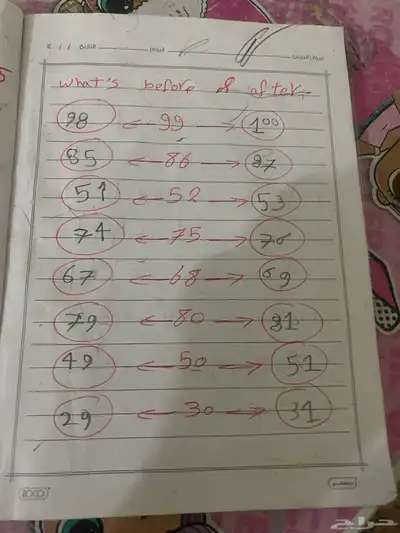 what's before & after
98 ← 99 → 100
85 ← 86 → 87
51 ← 52 → 53
74 ← 75 → 76
67 ← 68 → 69
79 ← 80 → 81
49 ← 50 → 51
29 ← 30 → 31
ROCO
حراج